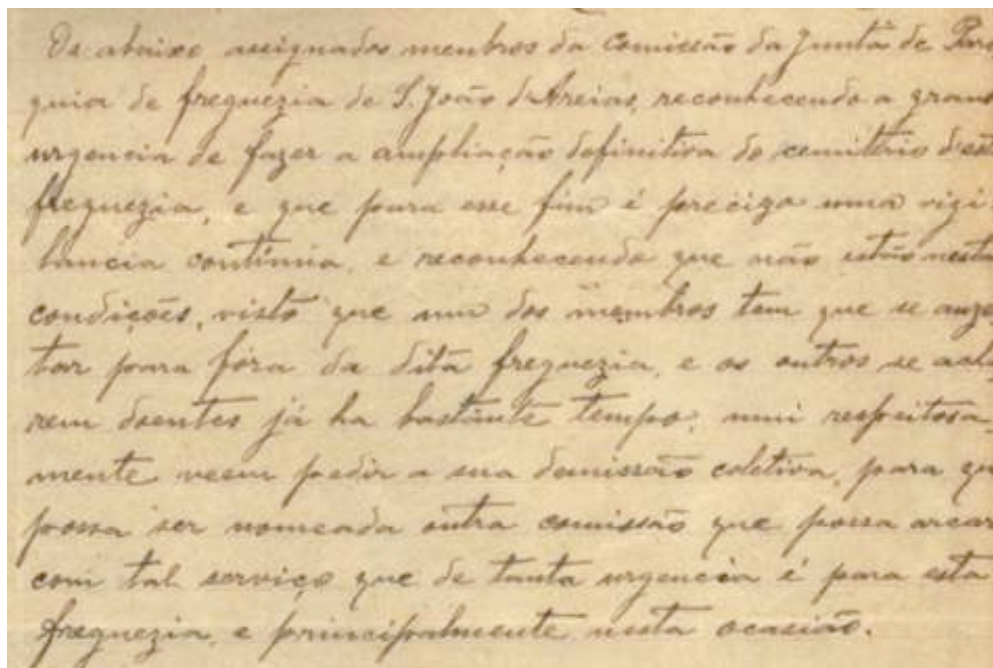 Os abaixo assignados membros da comissão da Junta de Paro
quia de freguezia de S. João d'Areias, reconhecendo a grand
urgencia de fazer a ampliação definitiva do cemitério d'est
freguezia, e que para esse fim é precizo uma vigi-
lancia contínua, e reconhecendo que não estão nesta
condições, visto que um dos membros tem que se auze
tar para fóra da dita freguezia, e os outros se acha
rem doentes já ha bastante tempo; mui respeitosa
mente veem pedir a sua demissão coletiva, para qu
possa ser nomeada outra comissão que possa arcar
com tal serviço que de tanta urgencia é para esta
freguezia, e principalmente nesta ocasião.